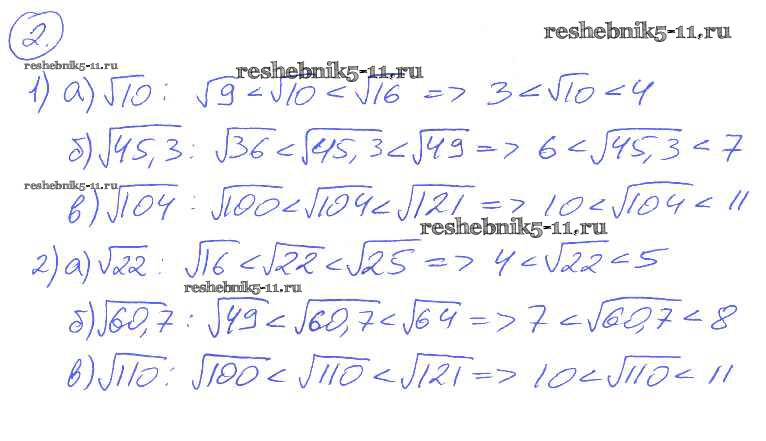 2.
reshebnik5-11.ru
reshebnik5-11.ru
reshebnik5-11.ru
1) а) √10 : √9 < √10 < √16 => 3 < √10 < 4
б) √45,3 : √36 < √45,3 < √49 => 6 < √45,3 < 7
reshebnik5-11.ru
в) √104 : √100 < √104 < √121 => 10 < √104 < 11
reshebnik5-11.ru
2) а) √22 : √16 < √22 < √25 => 4 < √22 < 5
reshebnik5-11.ru
б) √60,7 : √49 < √60,7 < √64 => 7 < √60,7 < 8
в) √110 : √100 < √110 < √121 => 10 < √110 < 11